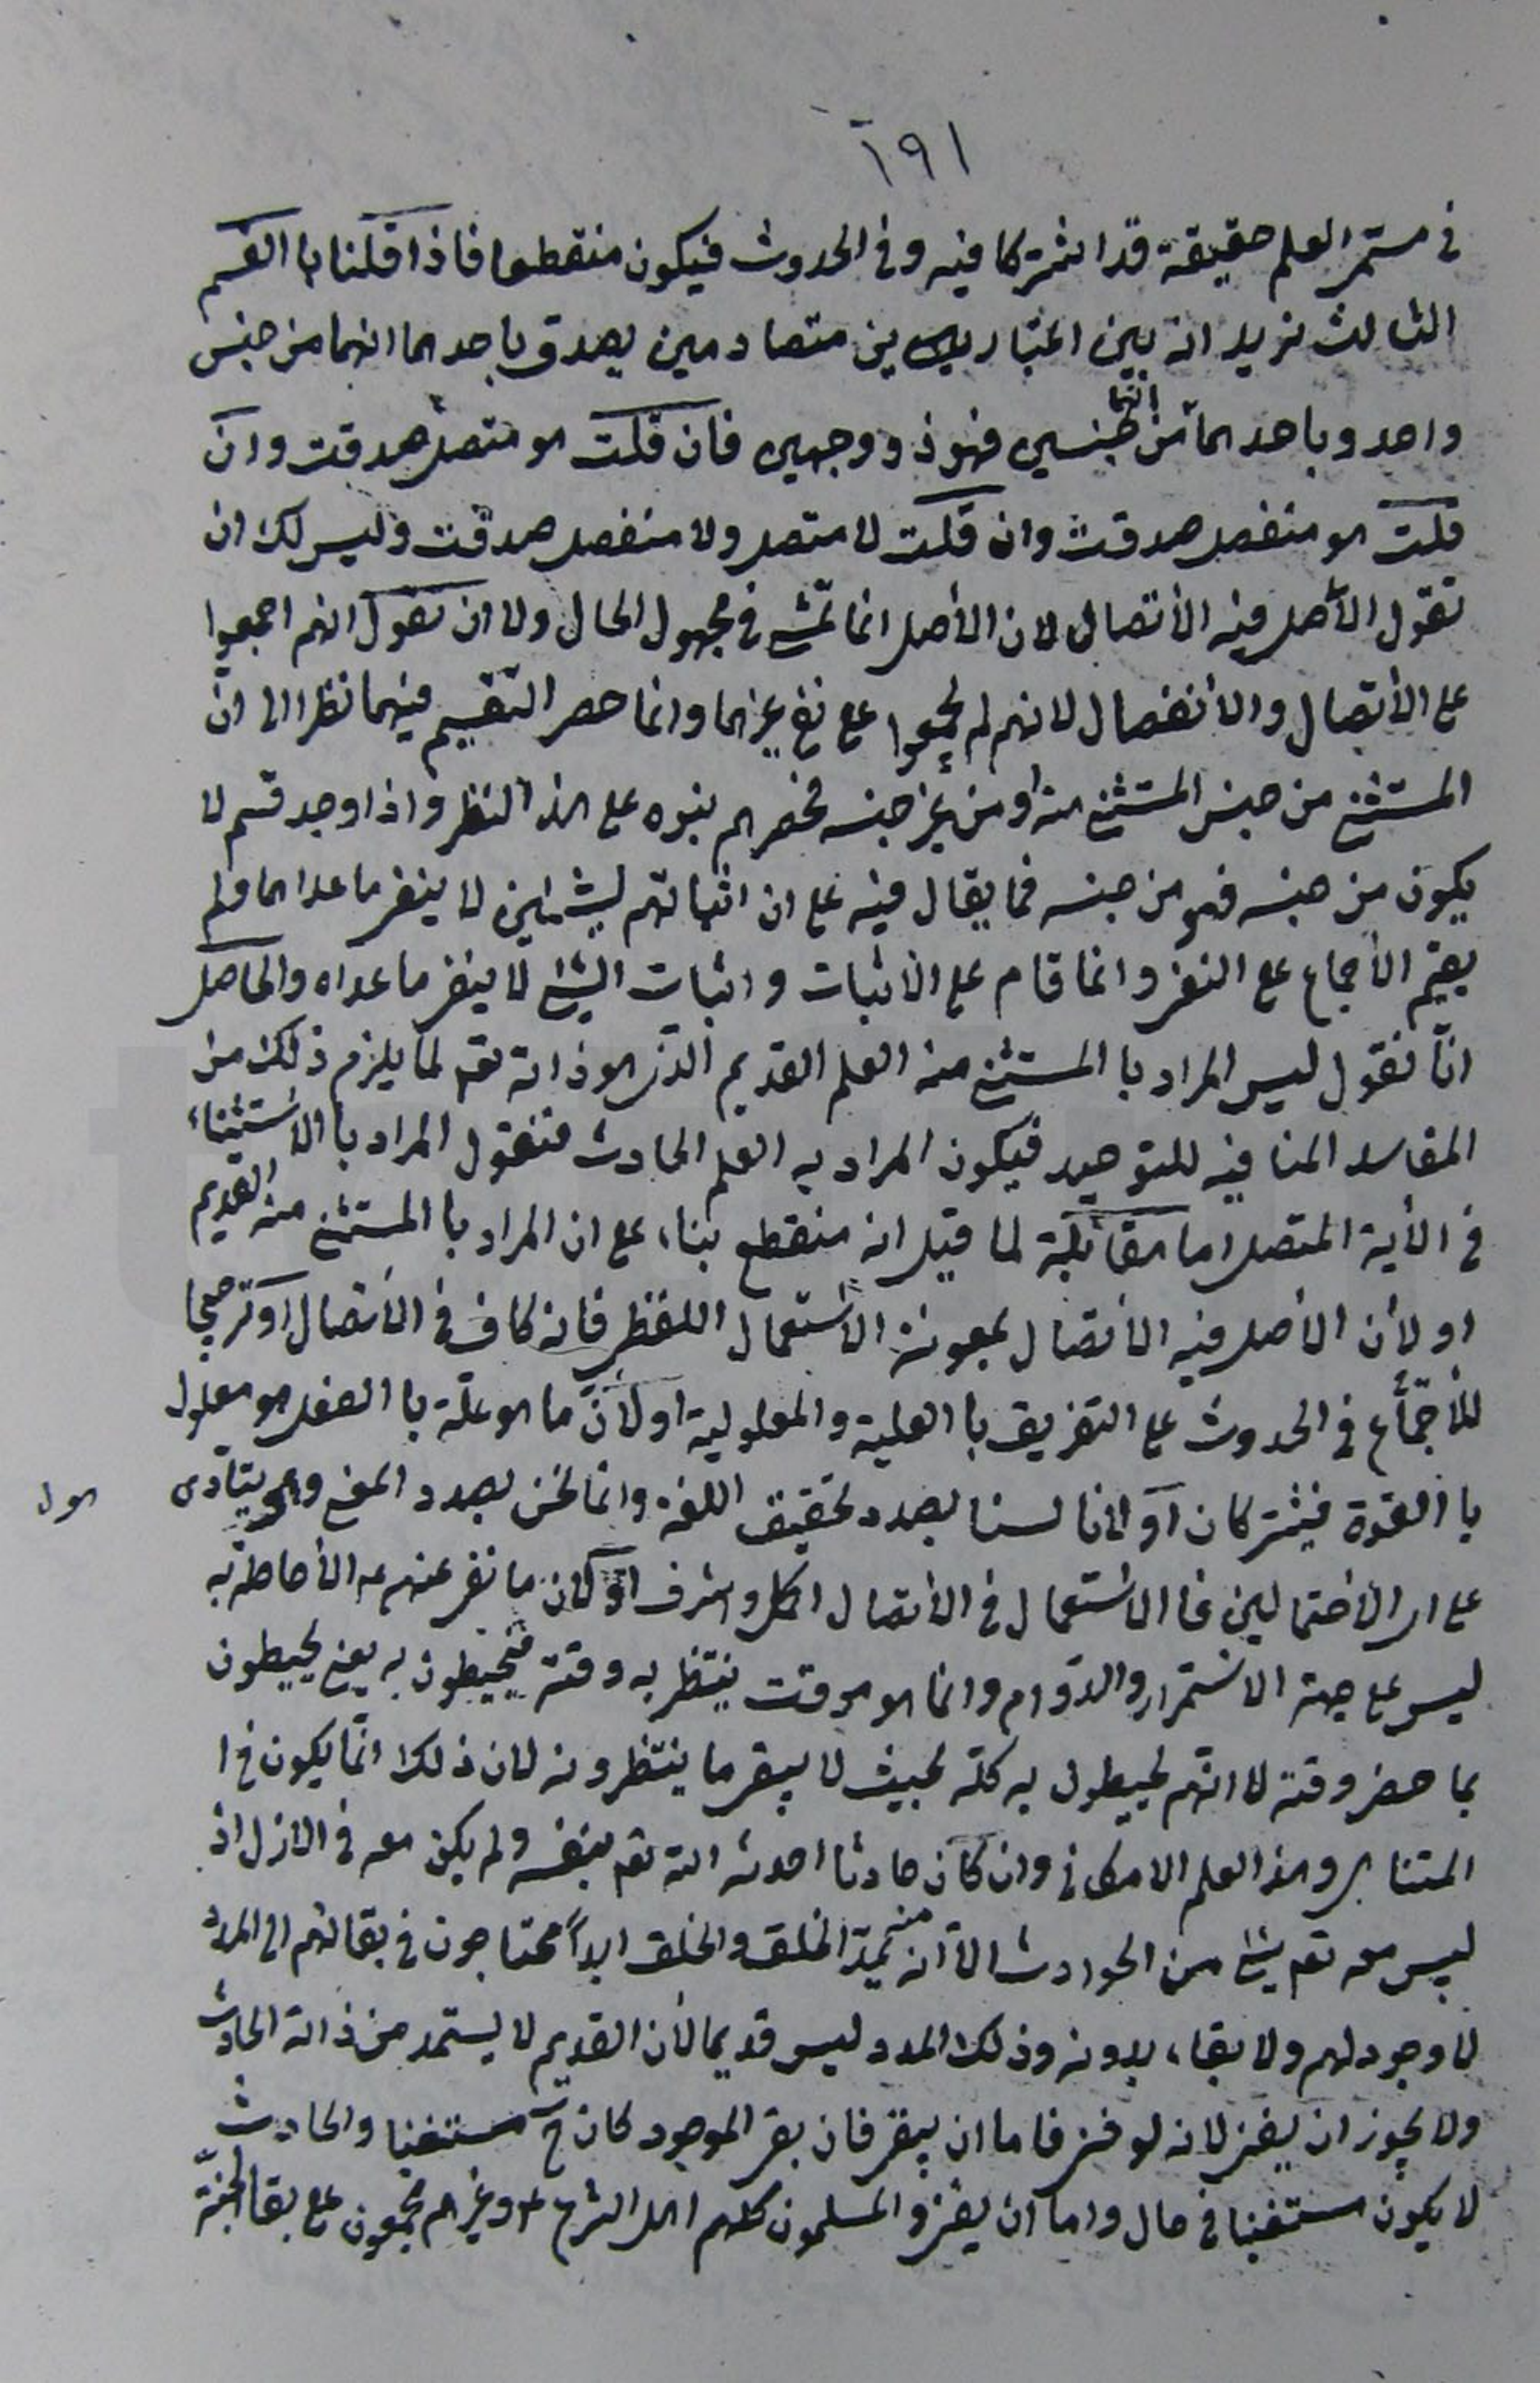 ١٩١
في مستمر العلم حقيقة قد اشتركا فيه وفي الحدوث فيكون منقطعا فاذا قلنا با القسم
الثالث نريد انه بين اعتباريين متصادمين يصدق باحدهما انهما من جنس
واحد وباحدهما انهما من جنسين فهو ذو وجهين فان قلت هو متصل صدقت وان
قلت هو منفصل صدقت وان قلت لا متصل ولا منفصل صدقت وليس لك ان
تقول الأصل فيه الأتصال لان الأصل انما تمشى في مجهول الحال ولا ان تقول انهم اجمعوا
على الأتصال والأنفصال لانهم لم يجمعوا على نفي غيرهما وانما حصر التقسيم فيهما نظرا الى ان
المستثنى من جنس المستثنى منه او من غير جنسه فحصرهم بنوه على هذا النظر واذا وجد قسم لا
يكون من جنسه فهو من جنسه فما يقال فيه على ان اثباتهم لشيئين لا ينفي ما عداهما ولم
يقم الأجماع على النفي وانما قام على الأثبات واثبات الشئ لا ينفي ما عداه والحاصل
انا نقول ليس المراد با المستثنى منه العلم القديم الذي هو ذاته تعم لما يلزم ذلك من
المفاسد المنافيه للتوحيد فيكون المراد به العلم الحادث فنقول المراد با الاستثناء
في الأية المتصل اما مقابلة لما قيل انه منقطع بناء على ان المراد با المستثنى منه القديم
او لأن الأصل فيه الأتصال بمعونة الأستعمال اللفظي فانه كاف في الأتصال او ترجيحا
للأجماع في الحدوث على التفريق با العلية والمعلولية او لأن ما هو علة با الفعل هو معلول
با القوة فيشتركان او لانا لسنا بصدد تحقيق اللغة وانما نحن بصدد المعنى وهو يتأدى هول
على اي الأحتمالين فا الاستعمال في الأتصال اكمل واشرف او كان ما نفى عنهم عه الأحاطة به
ليس على جهة الاستمرار والدوام وانما هو موقت ينتظر به وقته فيحيطون به يعني يحيطون
بما حضر وقته لا انهم يحيطون به كله بحيث لا يبقى ما ينتظرونه لان ذلك انما يكون في ا
المتناهي وهذا العلم الامكاني وان كان حادثا احدثه الله تعم بنفسه ولم يكن معه في الازل اذ
ليس معه تعم شئ من الحوادث الا انه منه يمد الخلق والخلق ابدا محتاجون في بقائهم الى المدد
لا وجود لهم ولا بقاء بدونه وذلك المدد ليس قديما لأن القديم لا يستمد من ذاته الحادث
ولا يجوز ان يفنى لانه لو فنى فاما ان يبقى فان بقى الموجود كان ح مستغنيا والحادث
لا يكون مستغنيا في حال واما ان يفنى والمسلمون كلهم اهل الشرع وغيرهم مجمعون على بقا الجنة